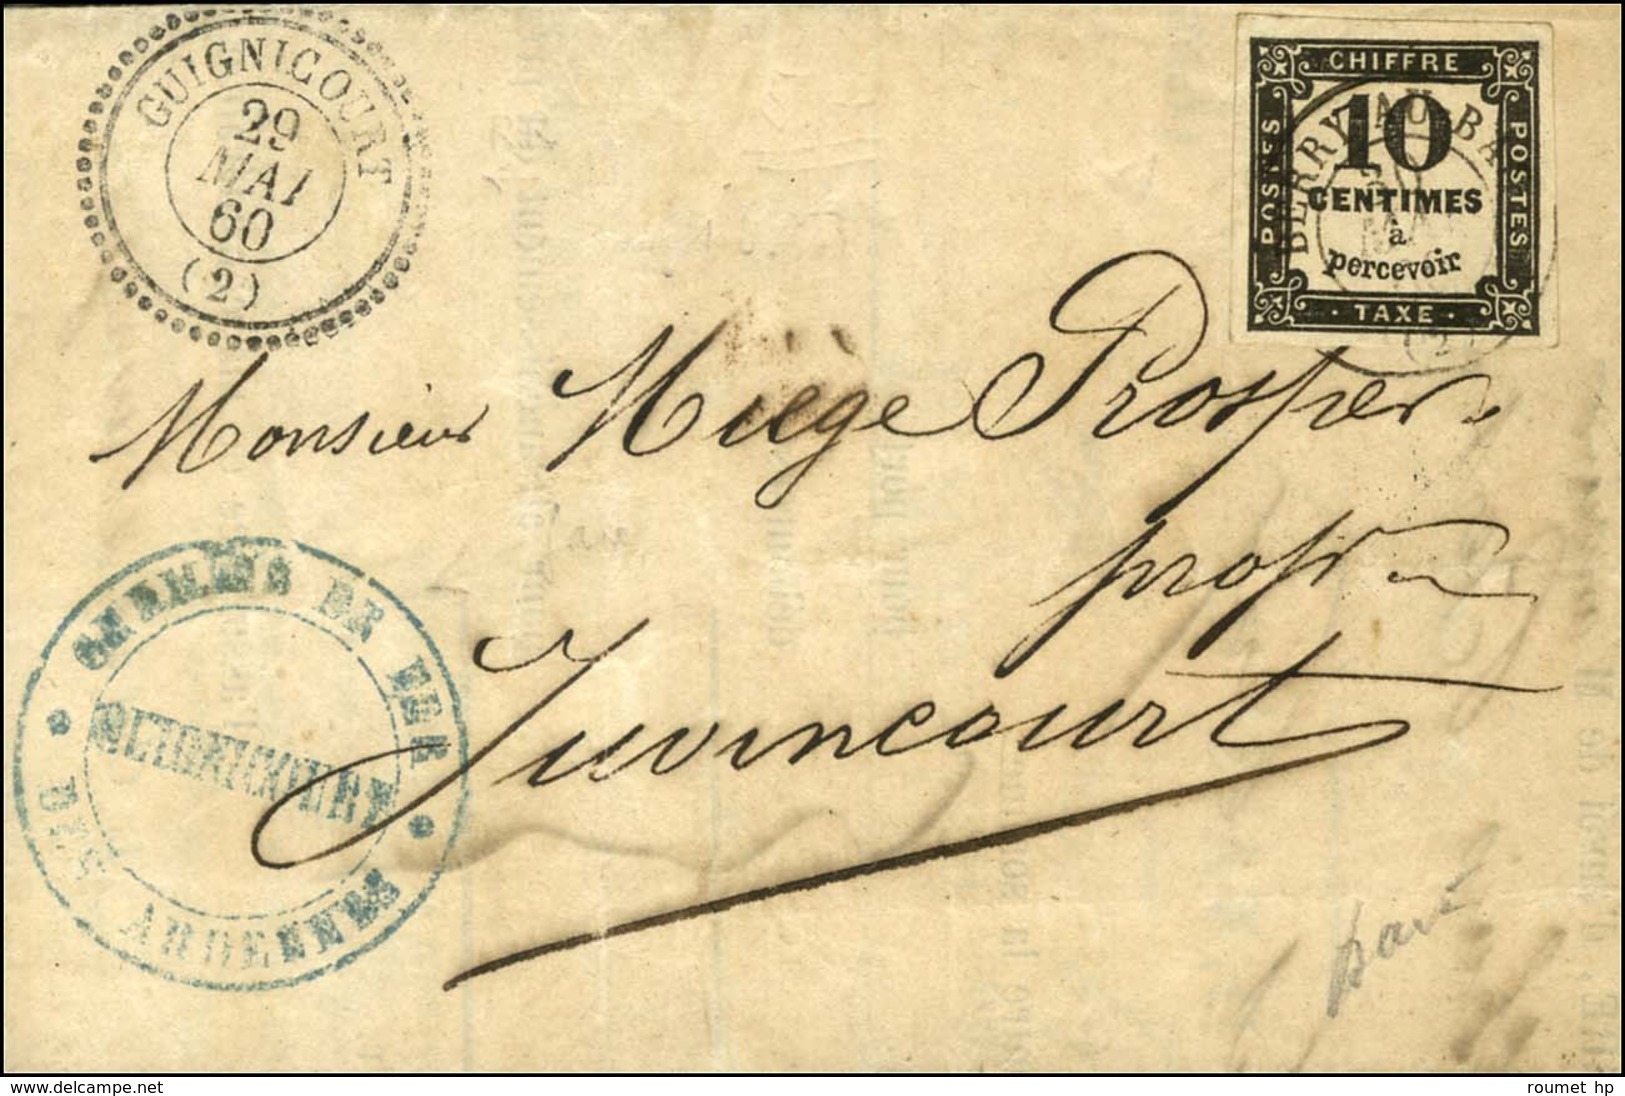 GUIGNICOURT
29
MAI
60
(2)
CHIFFRE
POSTES
10
CENTIMES
à
percevoir
POSTES
TAXE
BERRY AU BA
(2)
Monsieur Miège Prosper
propr
Juvincourt
CHEMINS DE FER
DES ARDENNES
www.delcampe.net
roumet hp